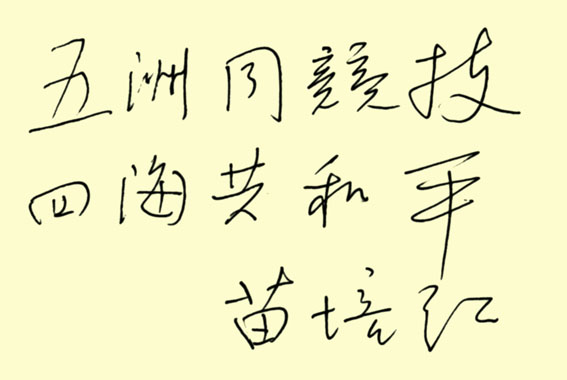 五洲同競技
四海共和平
苗培红